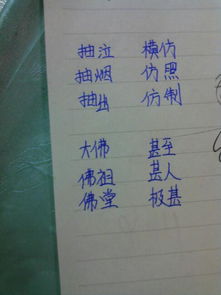 抽泣 横仿
抽烟 仿照
抽出 仿制
大佛 甚至
佛祖 甚人
佛堂 极甚